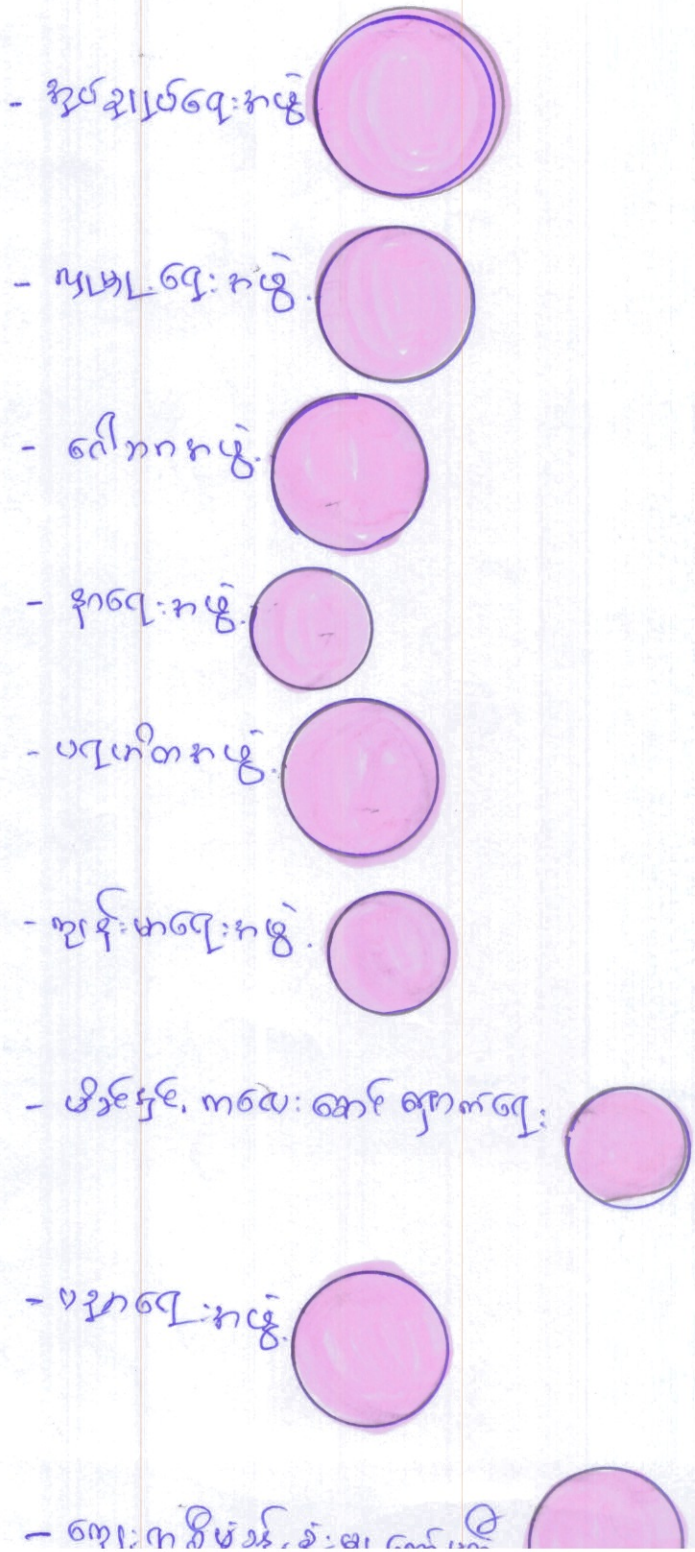 - အုပ်ချုပ်ရေးအဖွဲ့
- ကျမာရေးအဖွဲ့
- ဂေါပကအဖွဲ့
- နာရေးအဖွဲ့
- ပရဟိတအဖွဲ့
- ကျန်းမာရေးအဖွဲ့
- မိခင်နှင့် ကလေး စောင့်ရှောက်ရေး
- ပညာရေးအဖွဲ့
- ကျေးရွာ